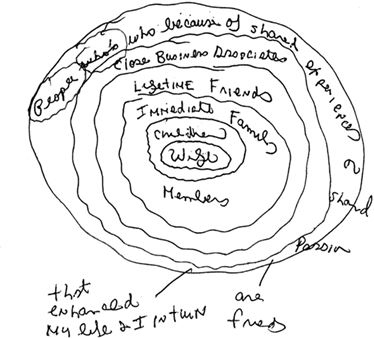 People who because of shared experiences or shared Passion
Close Business Associates
Lifetime Friends
Immediate Family
Children
Wife
Members
that
enhanced
My life & I in turn
are